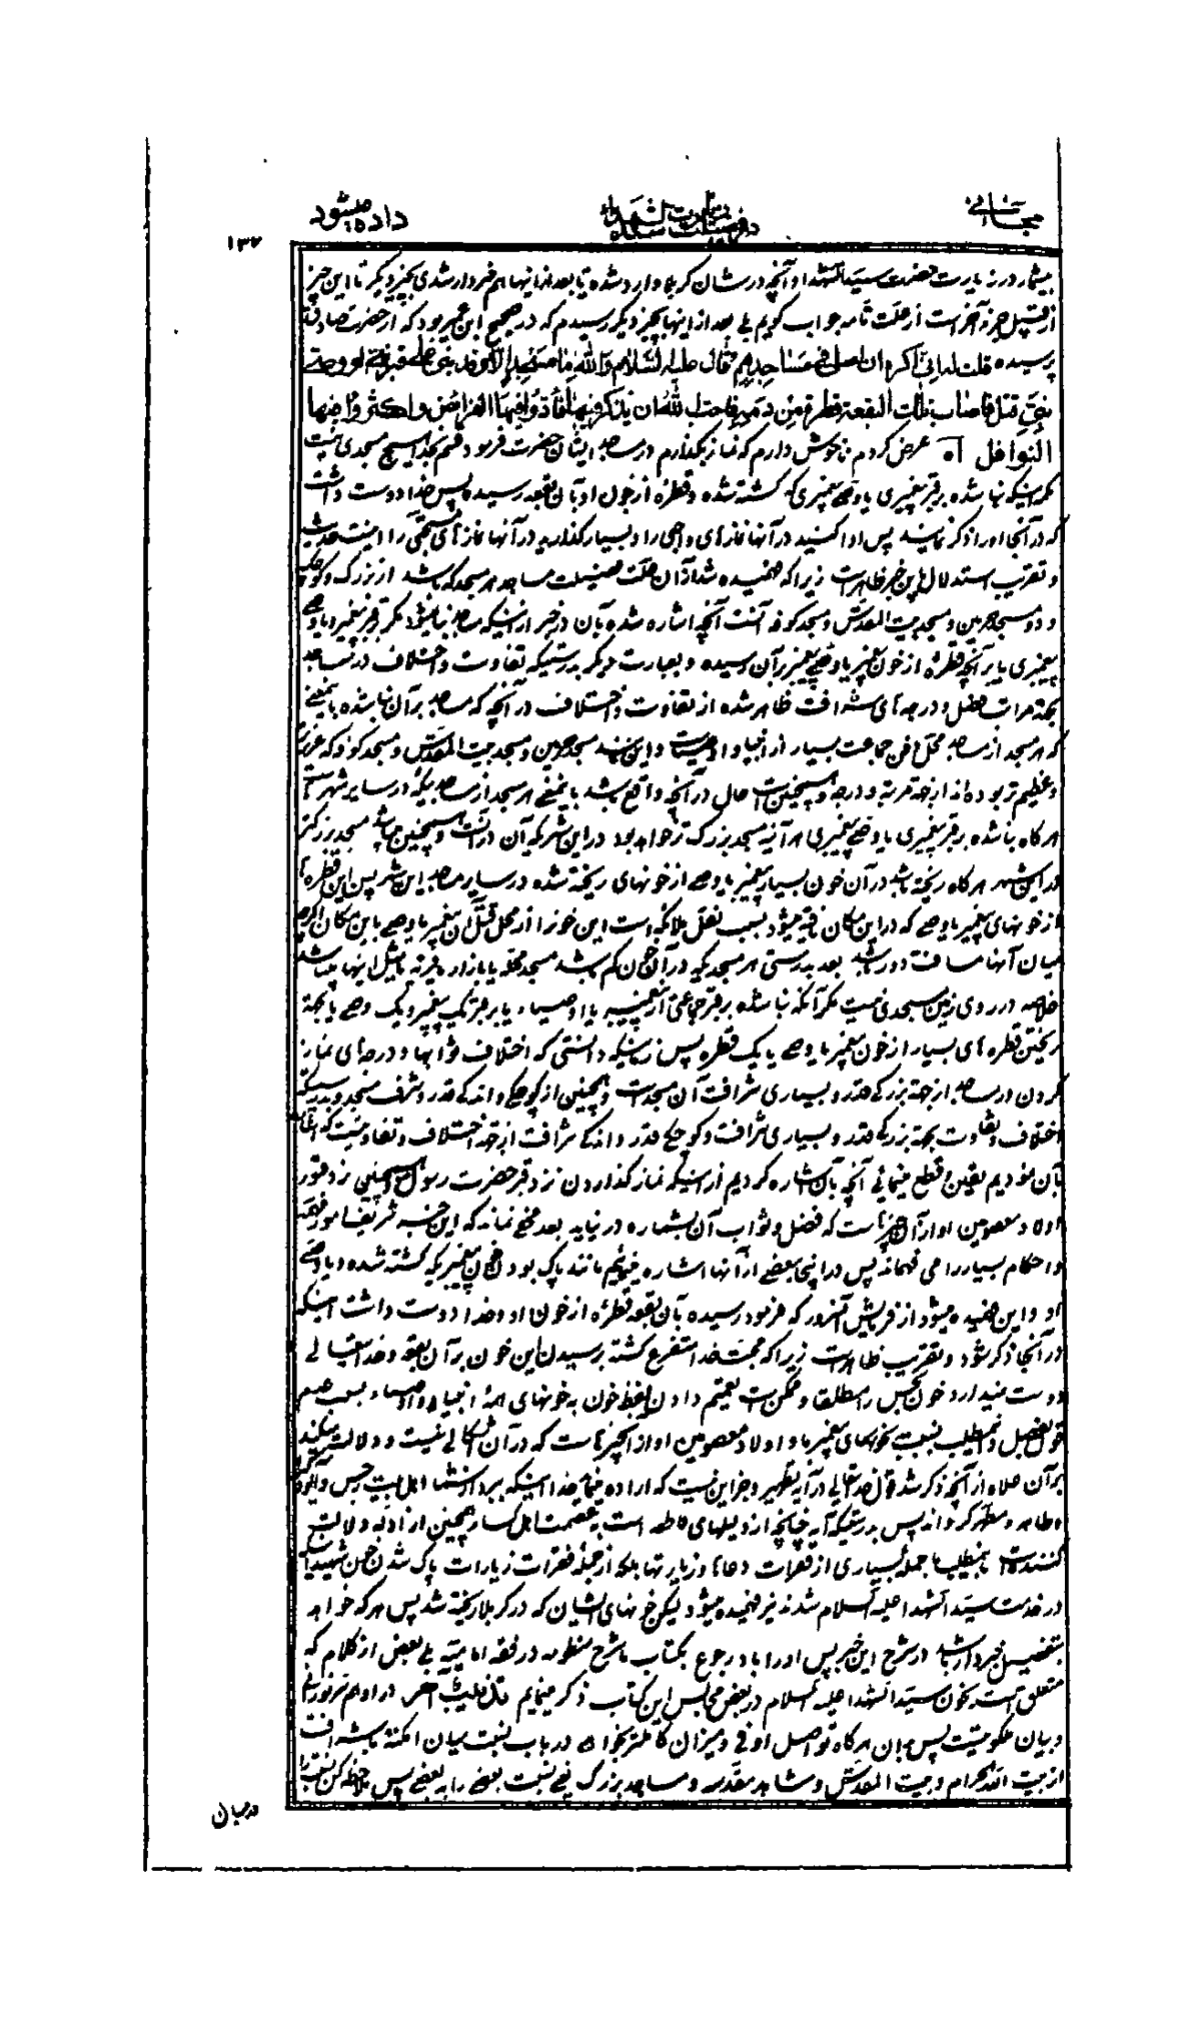 داده میشود
۱۳۷
بیشمار در زیارت حضرت سید الشهدا و آنچه در شان کربلا وارد شده تا بعد از اینها هم خبردار شدی بچیز دیگر تا این چیز
از قبیل جزء آخر است از علت تامه جواب گویم بلی بعد از اینها بچیز دیگر رسیدم که در صحیح ابن عمیر بود که از حضرت صادق
پرسیده قلت لمانی اکره ان اصلی فی مساجدهم فقال علیه السلام والله ما مسجد الا وقد بنی علی قبر نبی او وصی
نبی قتل فاصاب تلک البقعة قطرة من دمه فاحب الله ان یذکر فیها فأدوا فیها الفرائض واکثروا فیها
النوافل اه عرض کردم ناخوش دارم که نماز بگذارم در مساجد ایشان حضرت فرمود قسم بخدا هیچ مسجدی نیست
مگر اینکه بنا شده بر قبر پیغمبری یا وصی پیغمبری که کشته شده و قطره از خون او بآن بقعه رسیده پس خدا دوست داشت
که در آنجا او را ذکر نمایند پس ادا کنید در آنها نمازهای واجبی را و بسیار گذارید در آنها نمازهای مستحبی را اینست حدیث
و تقریب استدلال باین خبر ظاهر است زیرا که فهمیده شد از آن علت فضیلت مساجد هر مسجد که باشد از بزرگ و کوچک
و دو مسجد حرمین و مسجد بیت المقدس و مسجد کوفه آنست آنچه اشاره شده بآن در خبر از اینکه مساجد بنا نمیشود مگر بر قبر پیغمبر و یا وصی
پیغمبری یا بر آنچه قطره از خون پیغمبر یا وصی پیغمبر بر آن رسیده و بعبارت دیگر بدرستیکه تفاوت و اختلاف در مساجد
بجهة مراتب فضل و درجه های شرافت ظاهر شده از تفاوت و اختلاف در آنچه که مساجد بر آن بنا شده باینمعنی
که هر مسجد از مساجد محل دفن جماعت بسیار از انبیا و اوصیاست و این مسجد حرمین و مسجد بیت المقدس و مسجد کوفه که
و عظیم تر بوده اند از جهة مرتبه و درجه و همچنین است حال در آنچه واقع باشد باینمعنی هر مسجد از مساجدیکه در سایر شهر
هر گاه بنا شده بر قبر پیغمبری یا وصی پیغمبری هر آینه مسجد بزرگ تر خواهد بود در این شهر که آن در آنست و همچنین میباشد مسجد بزرگتر
در این شهر هر گاه ریخته باشد در آن خون بسیار پیغمبر یا وصی از خونهای ریخته شده در سایر مساجد این شهر پس این قطره ها
از خونهای پیغمبر یا وصی که در این مکان یافته میشود بسبب نقل ملائکه است این خون را از محل قتل آن پیغمبر یا وصی باین مکان اگر چه
میان آنها مسافت دور باشد بعد بدرستی هر مسجدیکه در آن خون کم باشد مسجد محله یا بازار یا قریه یا مثل اینها میباشد
خلاصه در روی زمین مسجدی نیست مگر آنکه بنا شده بر قبر جماعتی از پیغمبر یا اوصیاء یا بر قبر یک پیغمبر و یک وصی یا بجهة
ریختن قطره های بسیار از خون پیغمبر یا وصی یا یک قطره پس زمانیکه دانستی که اختلاف ثوابها و درجه های نماز
کردن در مساجد از جهة بزرگی قدر و بسیاری شرافت آن مسجد است و همچنین از کوچکی و اندکی قدر و شرف مسجد و بدرستیکه
اختلاف و تفاوت بجهة بزرگی قدر و بسیاری شرافت و کوچکی قدر و اندکی شرافت از جهة اختلاف و تفاوتیست که
بآن نمودیم یقین و قطع مینمائی آنچه بآن اشاره کردیم از اینکه نماز گذاردن نزد قبر حضرت رسول و همچنین نزد قبور
اولاد معصومین او از آن چیزهاست که فضل و ثواب آن بشماره در نیاید بعد مخفی نماند که این خبر شریف امور
و احکام بسیار را می فهماند پس در اینجا ببعضی از آنها اشاره مینمائیم مانند پاک بودن خون پیغمبریکه کشته شده و یا وصی
او و این فهمیده میشود از فرمایش آنسرور که فرمود رسیده بآن بقعه قطره از خون او و خدا دوست داشت اینکه
در آنجا ذکر شود و تقریب ظاهر است زیرا که محبت خدا متفرع گشته برسیدن این خون بر آن بقعه و خدا تعالی
دوست نمیدارد خون نجس را مطلقا و ممکن است تعمیم دادن لفظ خون به خونهای همه انبیاء و اوصیاء بسبب عدم
قول بفصل و مطلب بنسبت بخونهای پیغمبر ما و اولاد معصومین او از آنچیزهاست که در آن اشکالی نیست و دلالت میکند
بر آن علاوه از آنچه ذکر شد قول خدا تعالی در آیه تطهیر و جز این نیست که اراده مینماید خدا اینکه ببرد از شما اهل بیت رجس
و طاهر و مطهر گرداند پس بدرستیکه آیه چنانچه از دلیلهای قاطعه است به عصمت اهل کسا همچنین از ادله دلالت
کننده است باینمطلب با جمله بسیاری از فقرات دعاها و زیارتها بلکه از جمله فقرات زیارات پاک شدن خون شهیدان
در خدمت سید الشهدا علیه السلام شدند نیز فهمیده میشود لیکن خونهای ایشان که در کربلا ریخته شد پس هر که خواهد
بتفصیل خبردار باشد در شرح این خبر پس او را باید رجوع بکتاب ما شرح منظومه در فقه امامیه بلی بعض از کلام که
متعلق است بخون سید الشهدا علیه السلام در بعض مجالس این کتاب ذکر مینمایم
و بیان حکومتیست پس بدان هر گاه تو اصل اوفی و میزان کاملتر بخواهی در باب نسبت میان امکنه باشرافت
از بیت الله الحرام و بیت المقدس و مشاهد مقدسه و مساجد بزرگ یعنی نسبت بعضی را به بعضی پس ملاحظه کن نسبت را
در میان